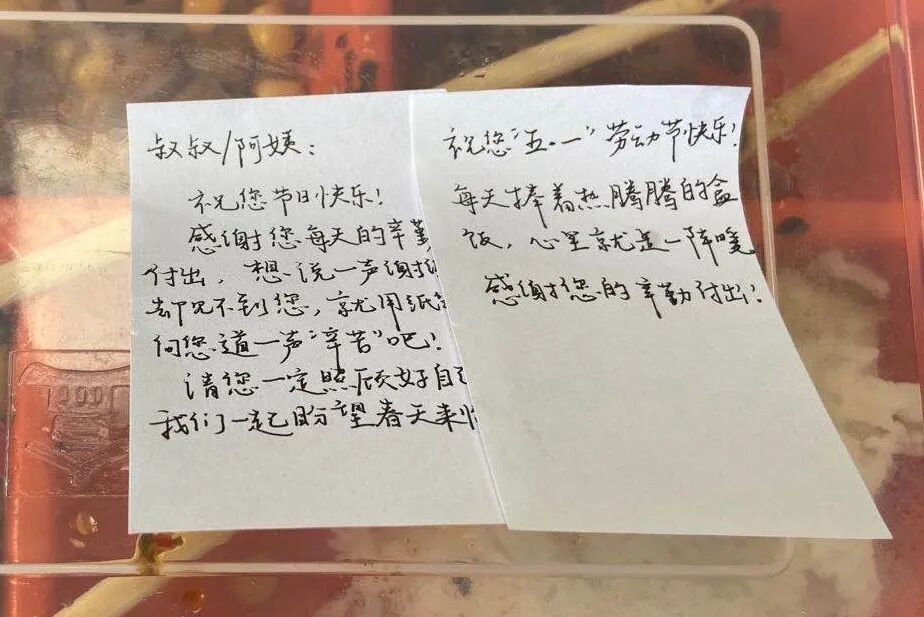 叔叔/阿姨：
祝您节日快乐！
感谢您每天的辛勤
付出，想说一声谢谢
却见不到您，就用纸
向您道一声“辛苦”吧！
请您一定照顾好自
我们一起盼望春天来
祝您“五·一”劳动节快乐！
每天捧着热腾腾的盒
饭，心里就是一阵暖
感谢您的辛勤付出！